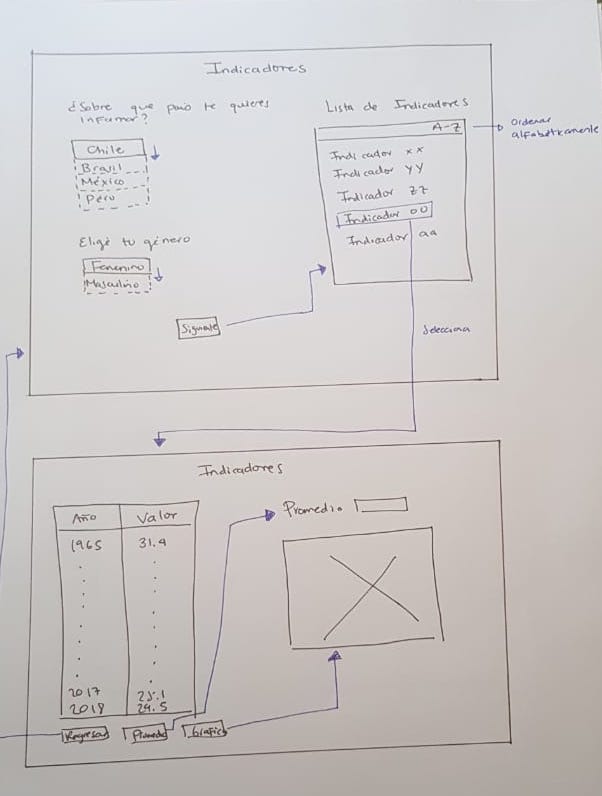 Indicadores
¿Sobre que país te quieres
informar?
Chile
Brasil
México
Perú
Elige tu género
Femenino
Masculino
Siguiente
Lista de Indicadores
A-Z
Ordenar
alfabéticamente
Indicador xx
Indicador yy
Indicador zz
Indicador oo
Indicador aa
Selecciona
Indicadores
Año Valor
1965 31.4
2017 25.1
2018 24.5
Regresar Promedio Grafico
Promedio